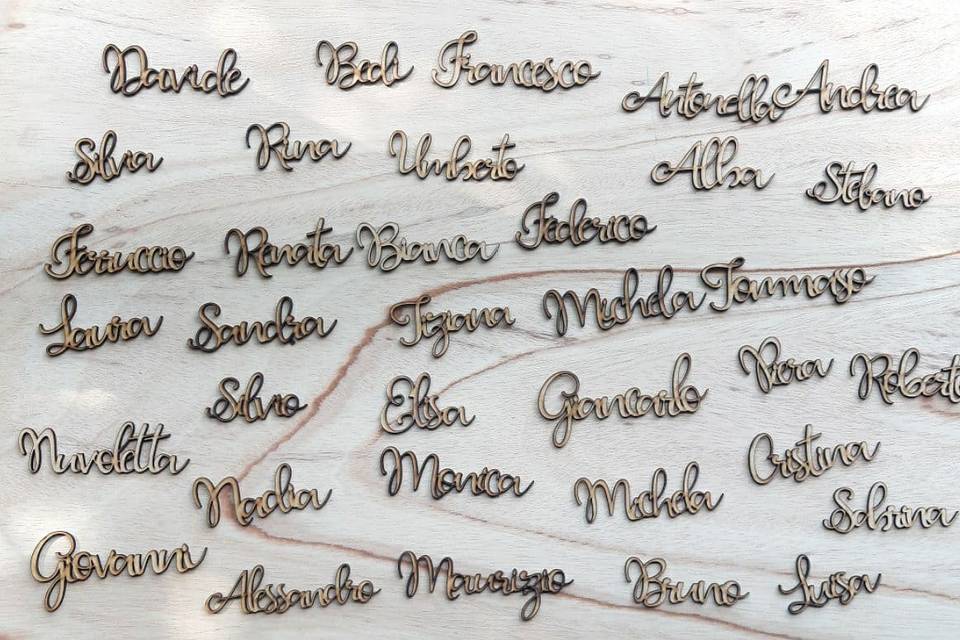 Davide Bedi Francesco Antonella Andrea
Silvia Rina Umberto Alba Stefano
Ferruccio Renata Bianca Federico
Laura Sandra Tiziana Michela Tommaso
Silvio Elisa Giancarlo Piera Robert
Nuvoletta Nadia Monica Michela Cristina
Sabrina
Giovanni Alessandro Maurizio Bruno Luisa